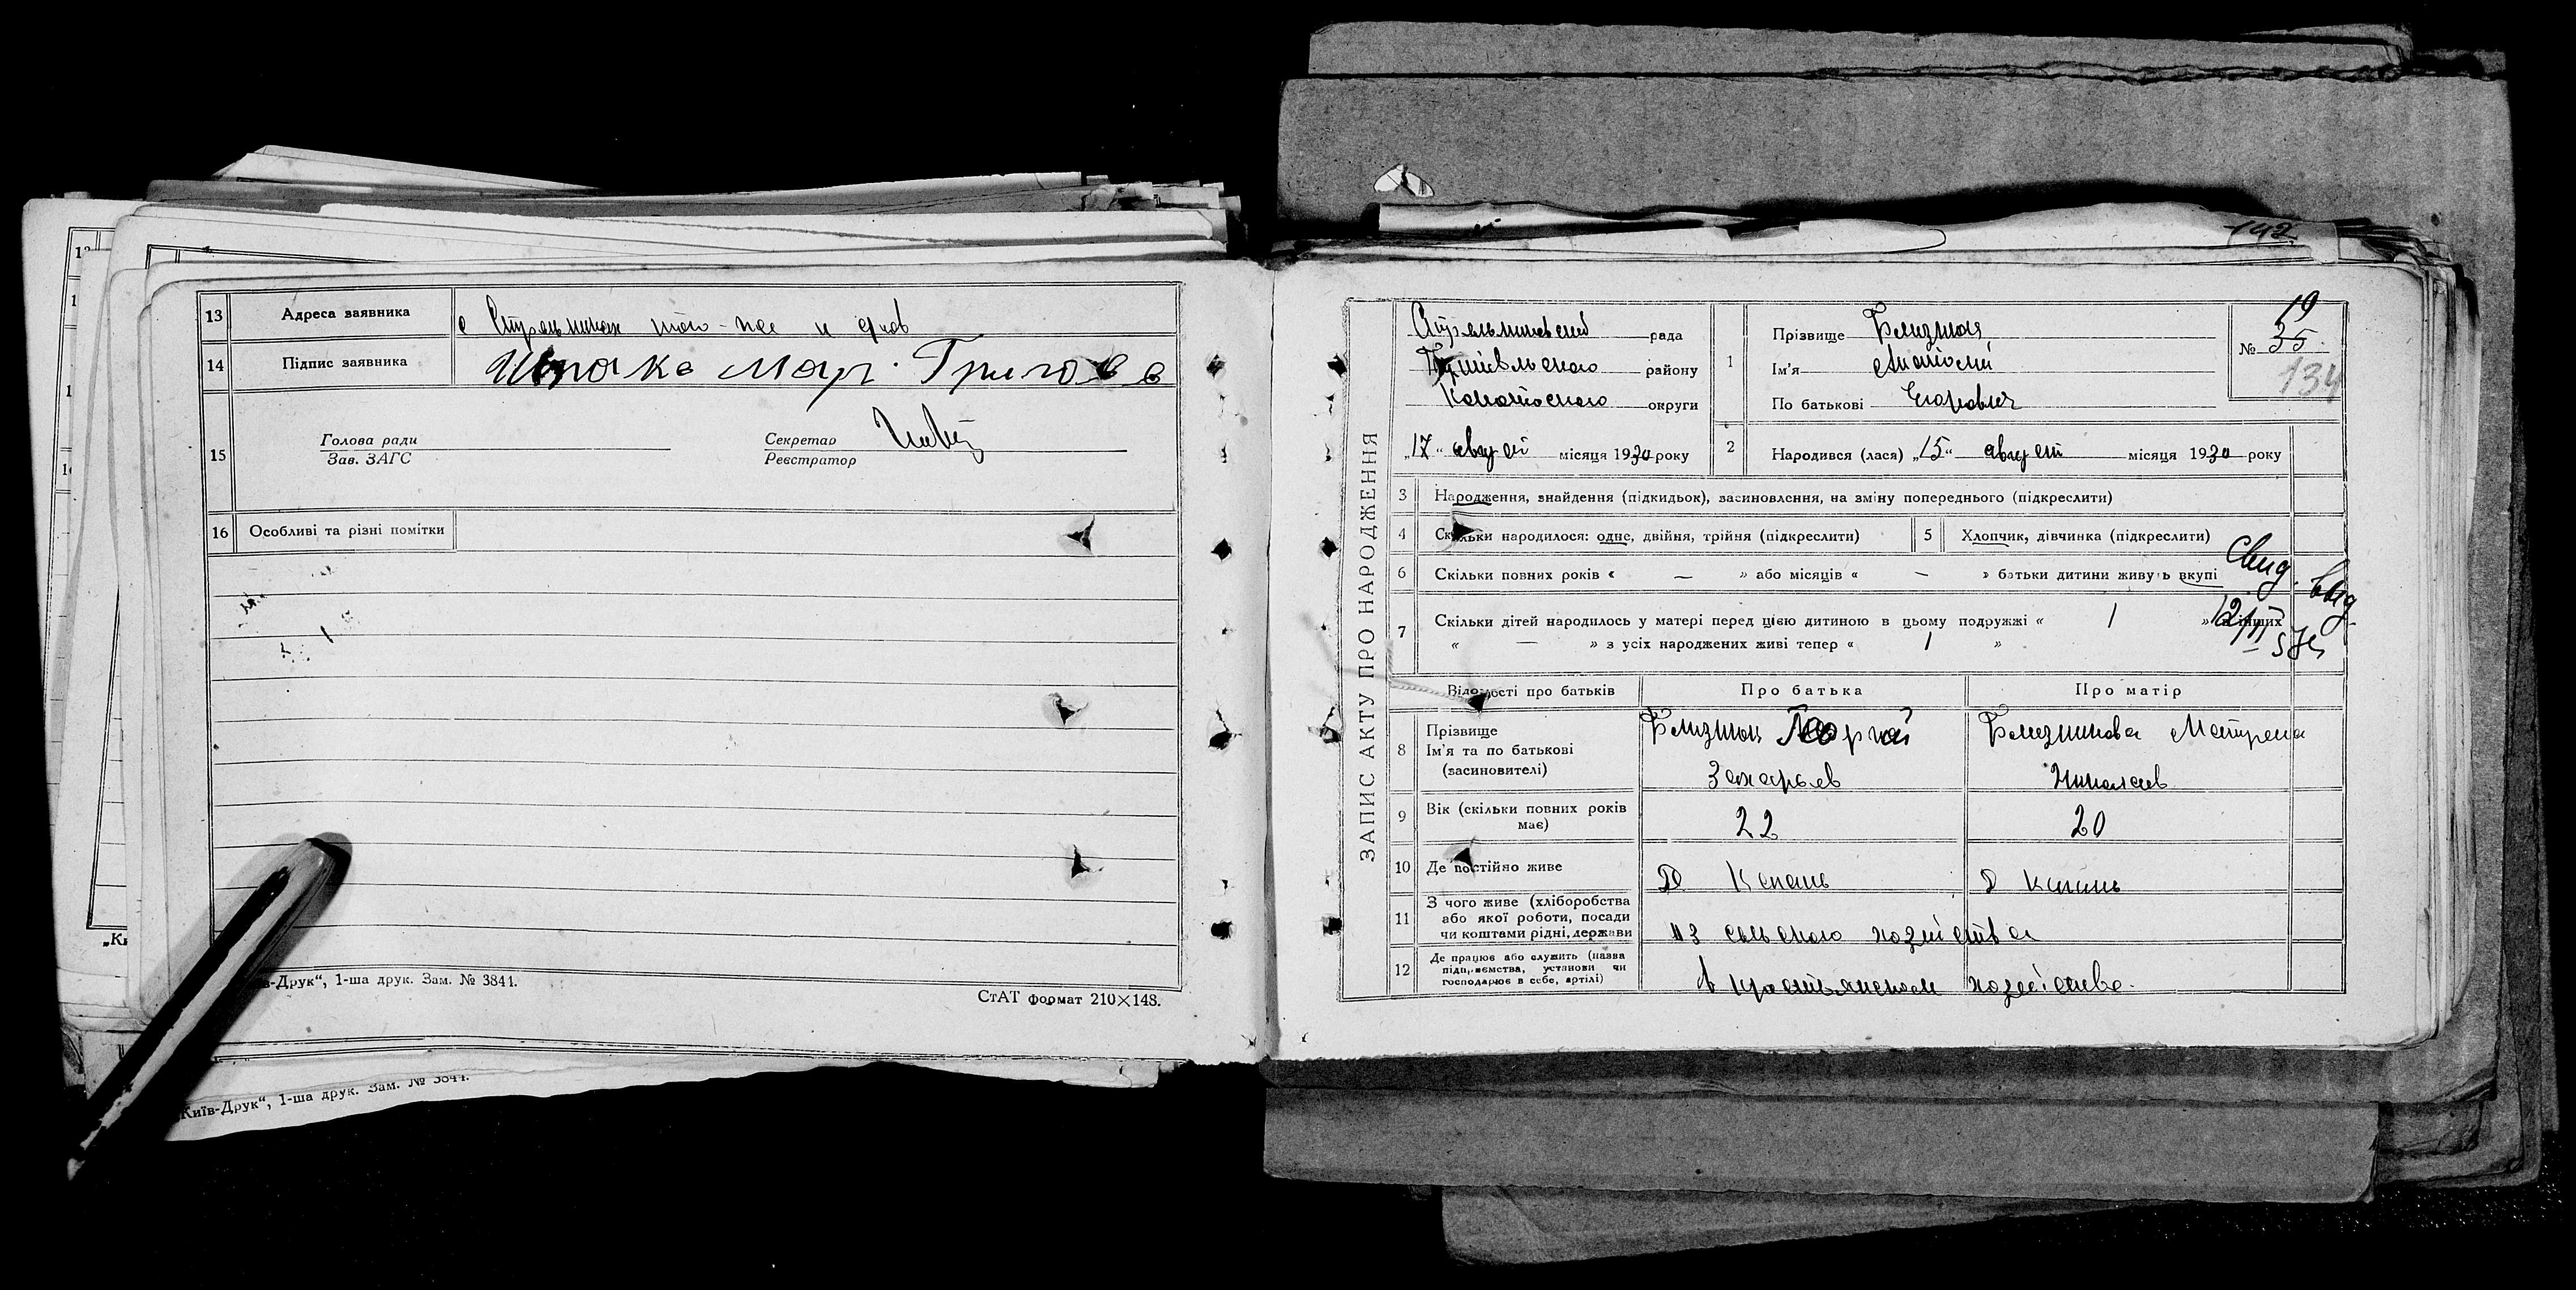 13 Адреса заявника с Стрельники того-же и р-на
14 Підпис заявника Шпака Мар. Григоов
15 Голова ради
Зав. ЗАГС
Секретар
Реєстратор
16 Особливі та різні помітки
в-Друк“, 1-ша друк. Зам. № 3841.
СтАТ формат 210×148.
Київ-Друк“, 1-ша друк. Зам. № 3841.
„Ки
142
ЗАПИС АКТУ ПРО НАРОДЖЕННЯ
рада
Путивльского району
Конотопского округи
„17“ август місяця 1930 року
1 Прізвище Близнюк
Ім'я Анатолий
По батькові Егорович
19
№ 35
134
2 Народився (лася) „15“ август місяця 1930 року
3 Народження, знайдення (підкидьок), засиновлення, на зміну попереднього (підкреслити)
4 Скільки народилося: одне, двійня, трійня (підкреслити) 5 Хлопчик, дівчинка (підкреслити)
6 Скільки повних років « — » або місяців « — » батьки дитини живуть вкупі
Свид. выд.
12/III
7 Скільки дітей народилось у матері перед цією дитиною в цьому подружжі « 1 » в інших
« — » з усіх народжених живі тепер « 1 »
Відомості про батьків Про батька Про матір
8 Прізвище
Ім'я та по батькові
(засиновителі)
Близнюк Георгий
Захарьев
Близнюкова Матрена
Николаев
9 Вік (скільки повних років має) 22 20
10 Де постійно живе Д Копань Д Копань
11 З чого живе (хліборобства
або якої роботи, посади
чи коштами рідні, держави
из сельского хозяйства
12 Де працює або служить (назва
підприємства, установи чи
господарює в себе, артілі)
в крестьянском хозяйстве